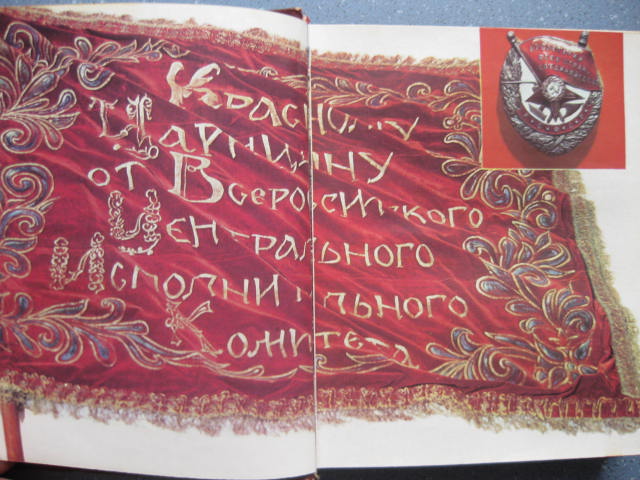 Красному
Царицыну
от Всероссийского
Центрального
Исполнительного
Комитета